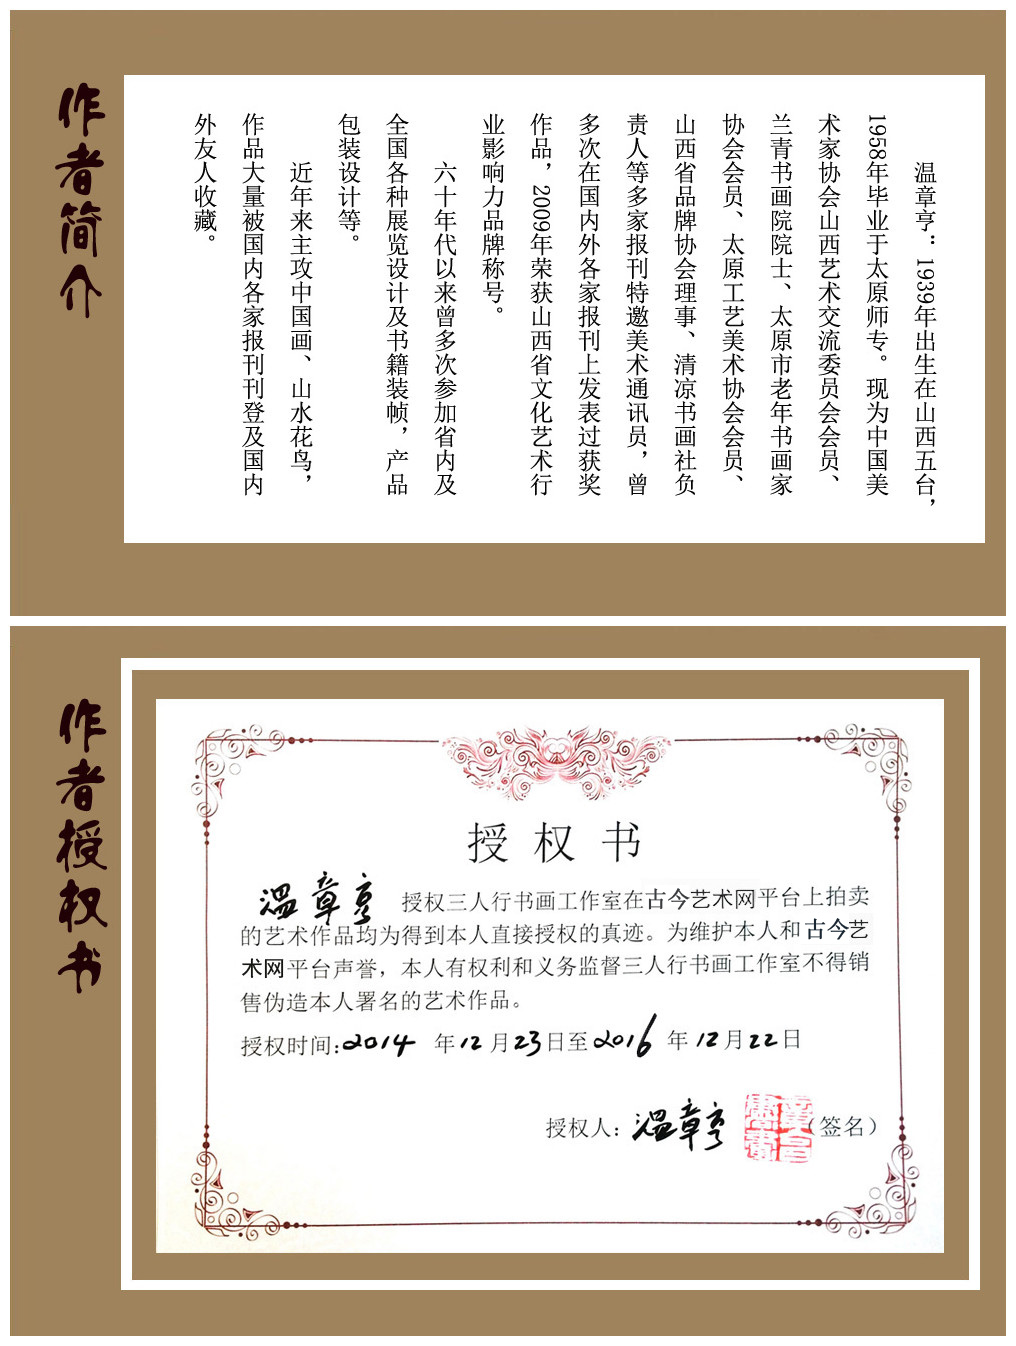 作者简介
温章亨：1939年出生在山西五台，
1958年毕业于太原师专。现为中国美
术家协会山西艺术交流委员会会员、
兰青书画院院士、太原市老年书画家
协会会员、太原工艺美术协会会员、
山西省品牌协会理事、清凉书画社负
责人等多家报刊特邀美术通讯员，曾
多次在国内外各家报刊上发表过获奖
作品，2009年荣获山西省文化艺术行
业影响力品牌称号。
六十年代以来曾多次参加省内及
全国各种展览设计及书籍装帧，产品
包装设计等。
近年来主攻中国画、山水花鸟，
作品大量被国内各家报刊刊登及国内
外友人收藏。
作者授权书
授权书
温章亨 授权三人行书画工作室在古今艺术网平台上拍卖
的艺术作品均为得到本人直接授权的真迹。为维护本人和古今艺
术网平台声誉，本人有权利和义务监督三人行书画工作室不得销
售伪造本人署名的艺术作品。
授权时间:2014 年12月23日至2016 年12月22日
授权人：温章亨（签名）